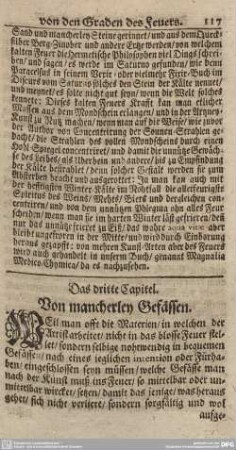 von den Graden des Feuers. 117
Sand und mancherley Steine gerinnet/ und aus dem
silber Berg-Zinober und andere Ertze werden/ von welchem
kalten Feuer die Hermetische Philosophen viel Dings schrei-
ben/ und sagen/ es werde im Saturno gefunden/ wie denn
Paracelsus in seinem Vexir- oder vielmehr Fixir-Buch im
Discurs vom Saturno solches den Stein der Kälte nennet/
und meynet es solte nicht gut seyn/ wenn die Welt solches
kennete: Dieses kalten Feuers Krafft kan man etlicher
Massen aus dem Mondschein erlangen/ und in der Artzney-
Kunst zu Nutz machen/ wenn man auf die Weise/ wie zuvor
der Author von Concentrirung der Sonnen Strahlen ge-
dacht/ die Strahlen des vollen Mondscheins durch einen
Hohl-Spiegel concentriret/ und damit die unnütze Gewäch-
se des Leibes/ als Uberbein und andere/ biß zu Empfindung
der Kälte bestrahlet/ denn solcher Gestalt werden sie zum
Absterben bracht und ausgerottet. Ja man kan auch mit
der hefftigsten Winter-Kälte im Nothfall die allerfeurigste
Spiritus des Weins/ Meths/ Biers und dergleichen con-
centriren/ und von dem unnützen Phlegma ohn alles Feur
scheiden/ wenn man sie im harten Winter läst gefrieren/ den
nur das unnütze gefrieret zu Eiß/ das wahre aber
bleibt ungefroren in der Mitte/ und wird durch Einbohrung
heraus gezapft: von mehren Kunst-Arten aber des Feuers
wird auch gehandelt in unserm Buch/ genannt Magnalia
Medico-Chymica/ da es nachzusehen.
Das dritte Capitel.
Von mancherley Gefässen.
WEil man offt die Materien/ in welchen der
Artist arbeitet/ nicht in das blosse Feuer stel-
let/ sondern selbige nothwendig in bequemen
Gefässen/ nach eines jeglichen intention oder Fürha-
ben/ eingeschlossen seyn müssen/ welche Gefässe man
nach der Kunst muß ins Feuer/ so mittelbar oder un-
mittelbar wircket/ setzen/ damit das jenige/ was heraus
gehet/ sich nicht verliere/ sondern sorgfältig und wol
aufge-